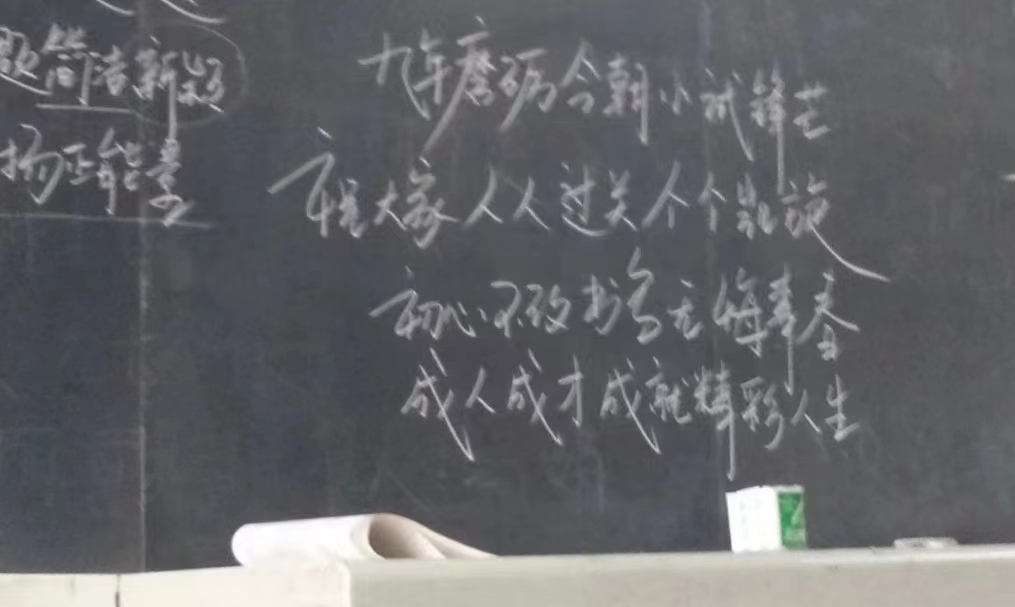 题简洁新颖
扬正能量
九年磨砺今朝小试锋芒
祝大家人人过关个个凯旋
初心不改书写无悔青春
成人成才成就精彩人生